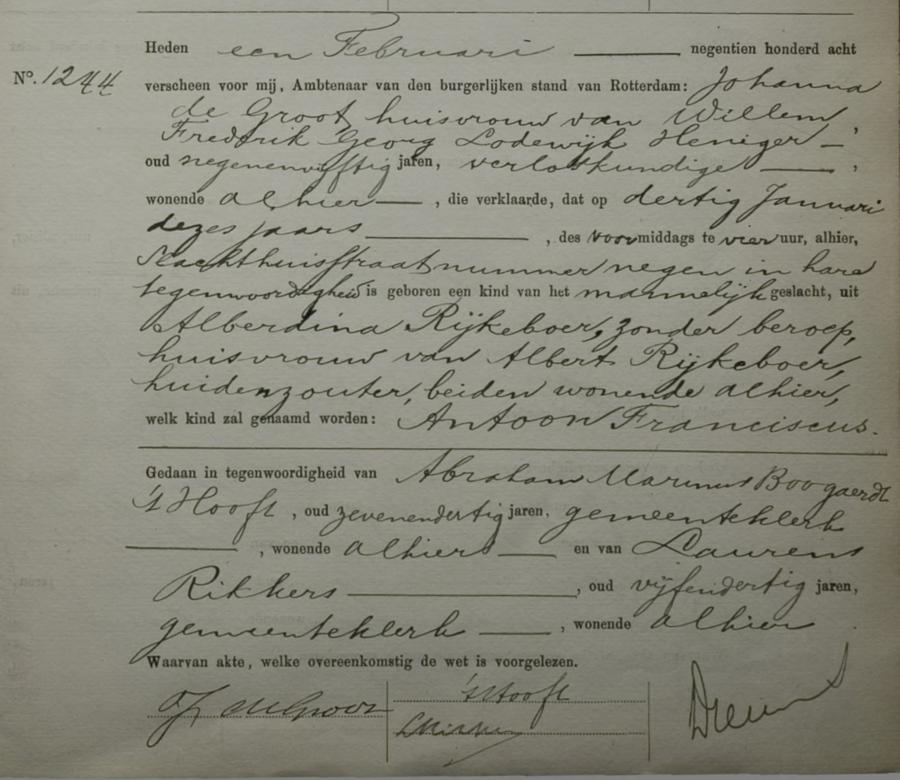 Heden een Februari negentien honderd acht
No. 1244 verscheen voor mij, Ambtenaar van den burgerlijken stand van Rotterdam: Johanna
de Groot, huisvrouw van Willem
Fredrik Georg Lodewijk Heniger,
oud negenenvijftig jaren, verloskundige,
wonende alhier, die verklaarde, dat op dertig Januari
dezes jaars, des voormiddags te vier uur, alhier,
Slachthuisstraat nummer negen in hare
tegenwoordigheid is geboren een kind van het mannelijk geslacht, uit
Alberdina Rijkeboer, zonder beroep,
huisvrouw van Albert Rijkeboer,
huidenzouter, beiden wonende alhier,
welk kind zal genaamd worden: Antoon Franciscus.
Gedaan in tegenwoordigheid van Abraham Marinus Boogaerdt
't Hooft, oud zevenendertig jaren, gemeenteklerk
, wonende alhier en van Laurens
Rikkers, oud vijfendertig jaren,
gemeenteklerk, wonende alhier
Waarvan akte, welke overeenkomstig de wet is voorgelezen.
de Groot
't Hooft